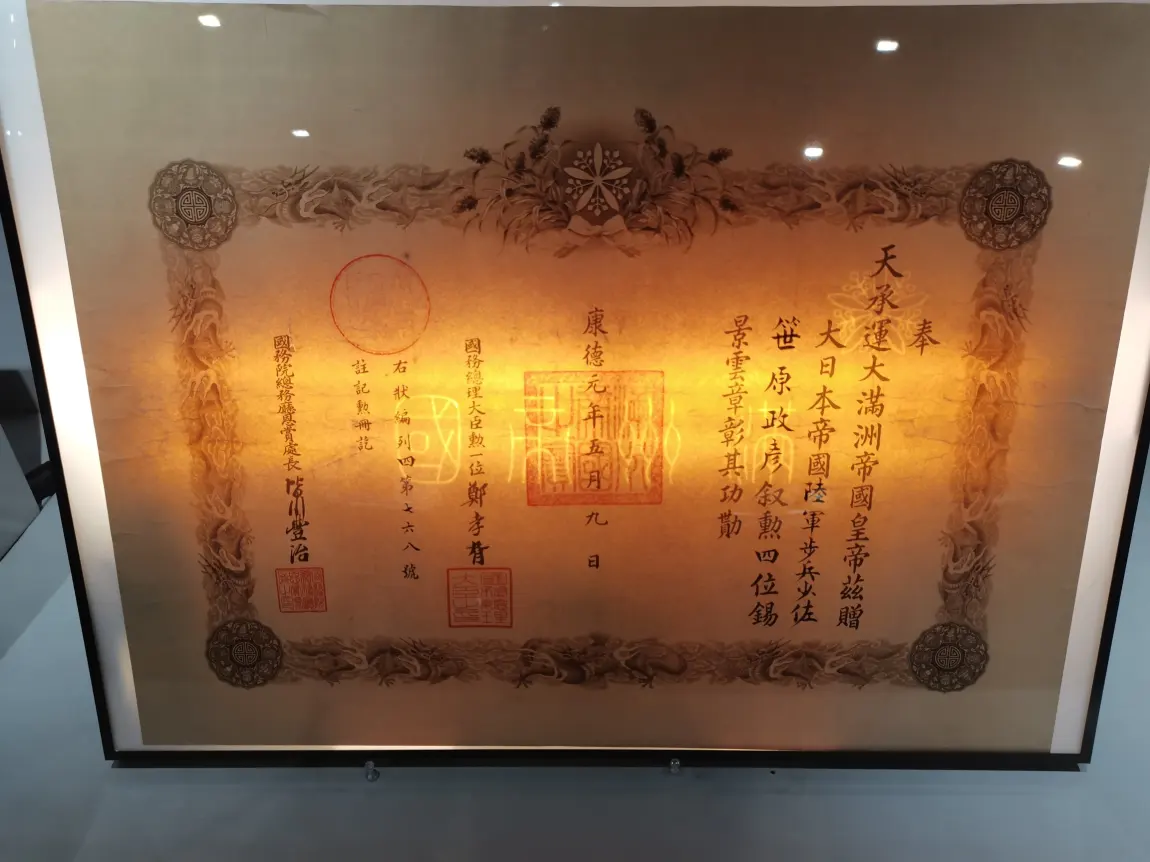 奉
天承運大滿洲帝國皇帝茲贈
大日本帝國陸軍步兵少佐
笹原政彦叙勲四位錫
景雲章彰其功勛
康德元年五月九日
國務總理大臣勲一位鄭孝胥
右狀編列四第七六八號
註記勲冊訖
國務院總務廳恩賞處長皆川豐治
滿洲帝國